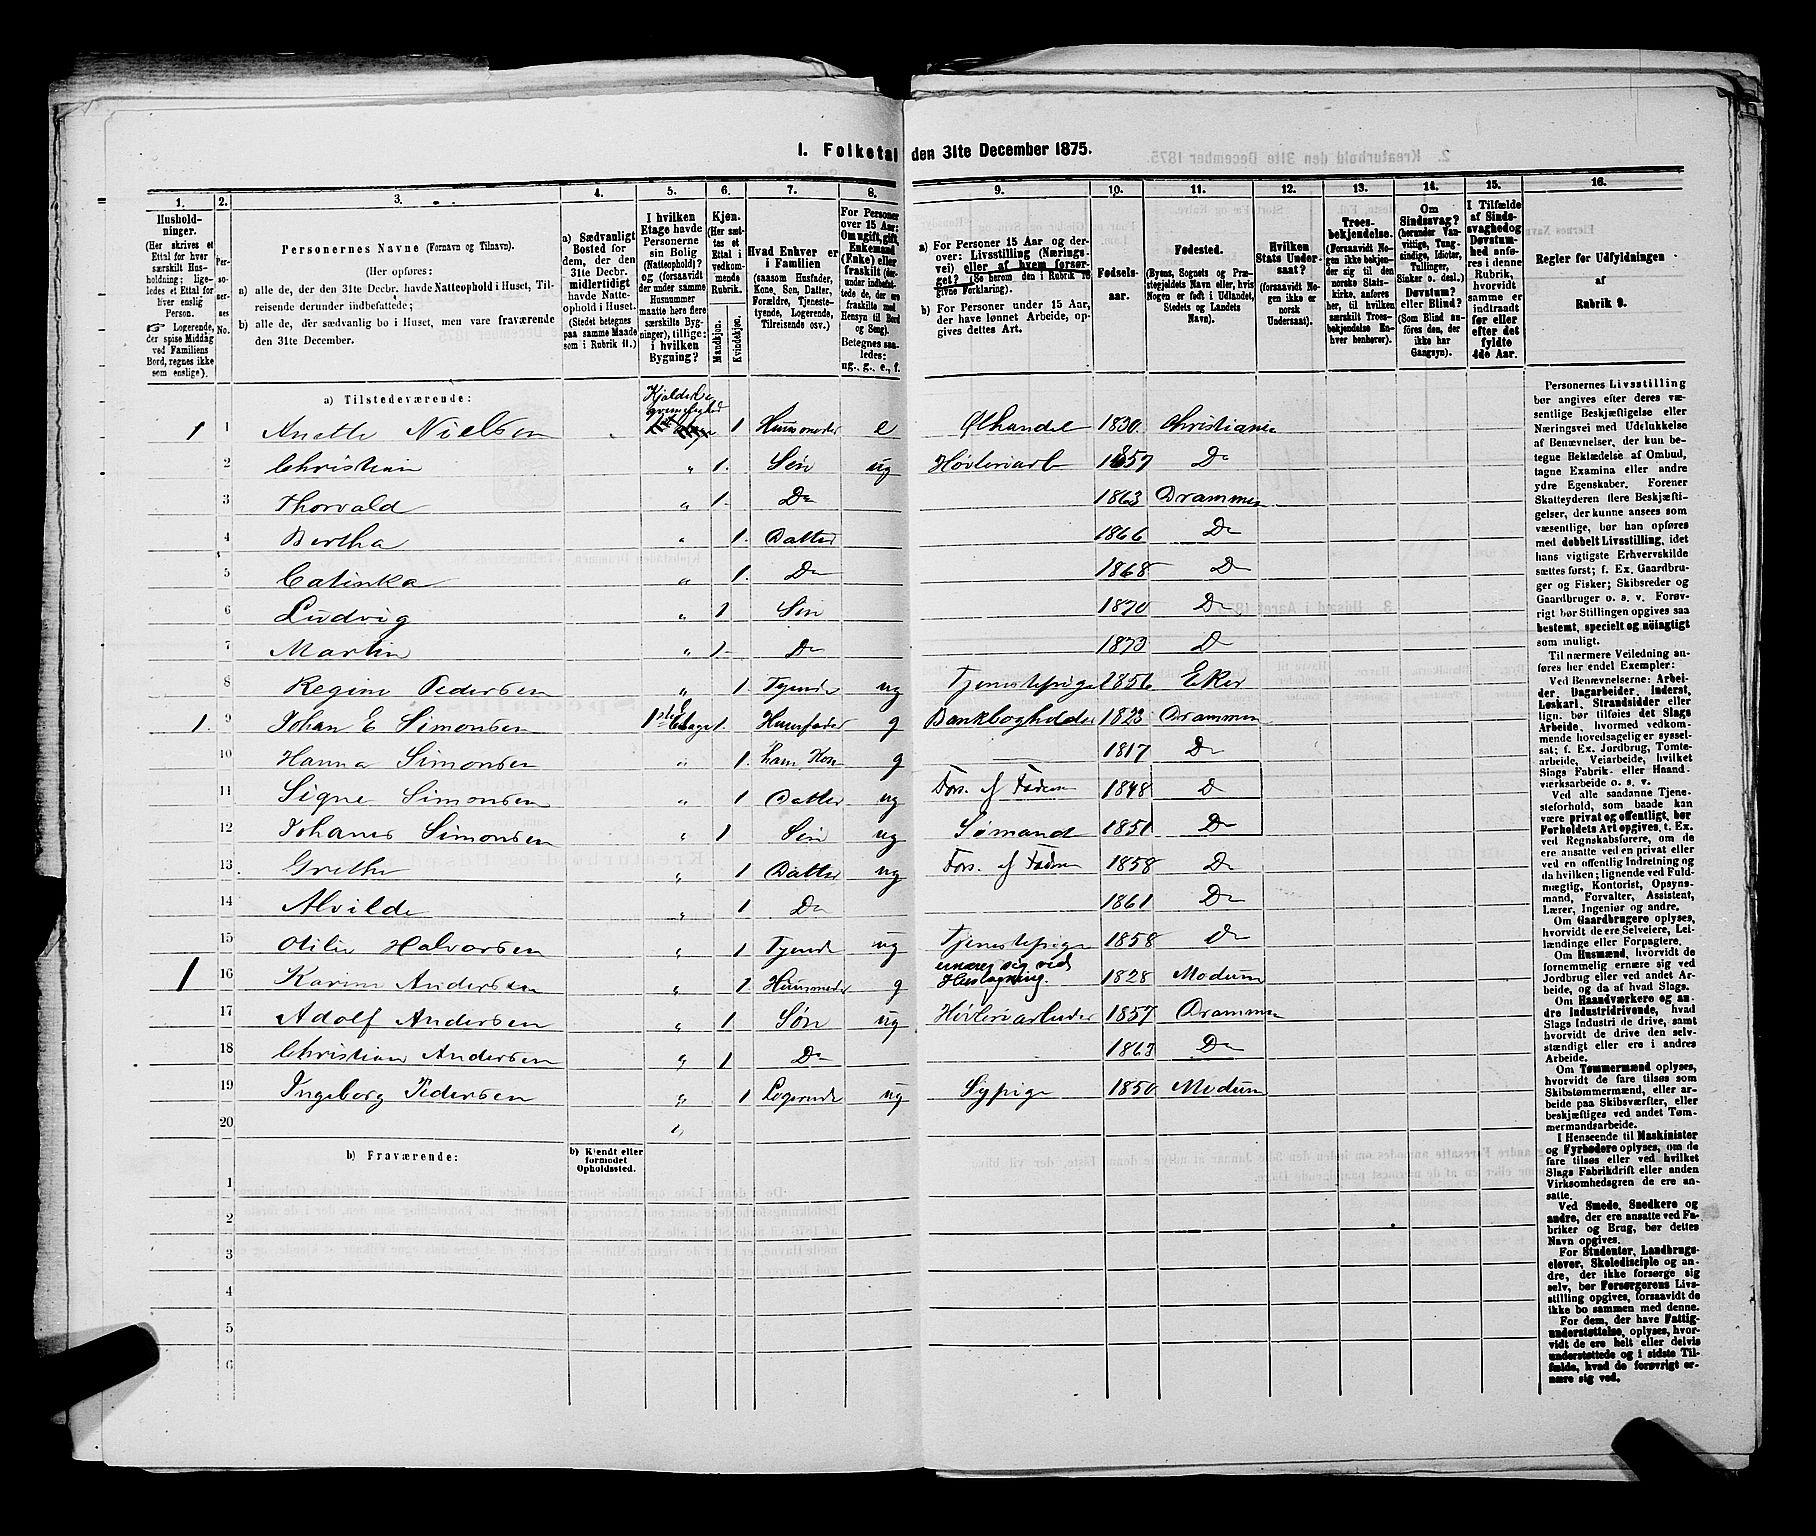 I. Folketal den 31te December 1875.
1. 2. 3. 4. 5. 6. 7. 8. 9. 10. 11. 12. 13. 14. 15. 16.
Husholdninger. (Her skrives et Ettal for hver særskilt Husholdning; ligeledes et Ettal for hver enslig Person. ☞ Logerende, der spise Middag ved Familiens Bord, regnes ikke som enslige).
Personernes No.
Personernes Navne (Fornavn og Tilnavn).
(Her opføres:
a) alle de, der den 31te Decbr. havde Natteophold i Huset, Tilreisende derunder indbefattede;
b) alle de, der sædvanlig bo i Huset, men vare fraværende den 31te December.
a) Sædvanligt Bosted for dem, der den 31te Decbr. midlertidigt havde Natteophold i Huset. (Stedet betegnes paa samme Maade som i Rubrik 11.)
I hvilken Etage havde Personerne sin Bolig (Natteophold)? og (forsaavidt der under samme Husnummer maatte høre flere særskilte Bygninger), tillige: i hvilken Bygning?
Kjøn. (Her sættes et Ettal i vedkommende Rubrik.
Mandkjøn. Kvindekjøn.
Hvad Enhver er i Familien (saasom Husfader, Kone, Søn, Datter, Forældre, Tjenestetyende, Logerende, Tilreisende osv.)
For Personer over 15 Aar: Om ugift, gift, Enkemand (Enke) eller fraskilt
Betegnes saaledes: ug., g., e., f.
a) For Personer 15 Aar og derover: Livsstilling (Næringsvei) eller af hvem forsørget? (Se herom den i Rubrik 16 givne Forklaring).
b) For Personer under 15 Aar, der have lønnet Arbeide, opgives dettes Art.
Fødselsaar.
Fødested. (Byens, Sognets og Præstegjeldets Navn eller, hvis Nogen er født i Udlandet, Stedets og Landets Navn).
Hvilken Stats Undersaat? (forsaavidt Nogen ikke er norsk Undersaat).
Troesbekjendelse. (Forsaavidt Nogen ikke bekjender sig til den norske Statskirke, anføres her, til hvilken særskilt Troesbekjendelse Enhver henhører).
Om Sindssvag? (herunder Vanvittige, Tungsindige, Idioter, Tullinger, Sinker o. desl.) Døvstum? eller Blind? (Som Blind anføres den, der ikke har Gangsyn).
I Tilfælde af Sindssvaghed og Døvstumhed anføres i denne Rubrik, hvorvidt samme er indtraadt før eller efter det fyldte 4de Aar.
Regler for Udfyldningen af Rubrik 9.
a) Tilstedeværende:
1 1 Anette Nielsen 1 Huusmoder e Ølhandel 1830 Christiania
2 Christian " 1 Søn ug Høvleriarb 1857 Do
3 Thorvald " 1 Do 1863 Drammen
4 Bertha " 1 Datter 1866 Do
5 Catinka " 1 Do 1868 Do
6 Ludvig " 1 Søn 1870 Do
7 Martin " 1 Do 1873 Do
8 Regine Pedersen " 1 Tyende ug Tjenestepige 1856 Eker
1 9 Johan E Simonsen 1ste Etage 1 Huusfader g Bankbogholder 1823 Drammen
10 Hanna Simonsen " 1 hans Kone g 1817 Do
11 Signe Simonsen " 1 Datter ug Fors. af Faderen 1848 Do
12 Johanes Simonsen " 1 Søn ug Sømand 1851 Do
13 Grethe " 1 Datter ug Fors. af Faderen 1858 Do
14 Alvilde " 1 Do 1861 Do
15 Otilie Halvorsen " 1 Tyende ug Tjenestepige 1858 Do
1 16 Karine Andersen " 1 Huusmoder g ernærer sig ved 1828 Modum
17 Adolf Andersen " 1 Søn ug Høvleriarbeider 1857 Drammen
18 Christian Andersen " 1 Do 1863 Do
19 Ingeborg Pedersen " 1 Logerende ug Sypige 1850 Modum
20 "
b) Fraværende: b) Kjendt eller formodet Opholdssted.
1
2
3
4
5
6
Personernes Livsstilling
bør angives efter deres væsentlige
Beskjæftigelse eller
Næringsvei med Udelukkelse
af Benævnelser, der kun betegne
Beklædelse af Ombud,
tagne Examina eller andre
ydre Egenskaber. Forener
Skatteyderen flere Beskjæftigelser,
der kunne ansees som
væsentlige, bør han opføres
med dobbelt Livsstilling, idet
hans vigtigste Erhvervskilde
sættes først; f. Ex. Gaardbruger
og Fisker; Skibsreder og
Gaardbruger o. s. v. Forøvrigt
bør Stillingen opgives saa
bestemt, specielt og nöiagtigt
som muligt.
Til nærmere Veiledning anføres
her endel Exempler:
Ved Benævnelserne: Arbeider,
Dagarbeider, Inderst,
Løskarl, Strandsidder eller
lign. bør tilføies det Slags
Arbeide, hvormed vedkommende
hovedsagelig er sysselsat;
f. Ex. Jordbrug, Tomtearbeide,
Veiarbeide, hvilket
Slags Fabrik- eller Haandværksarbeide
o. s. v.
Ved alle saadanne Tjenesteforhold,
som baade kan
være privat og offentligt, bør
Forholdets Art opgives, t. Ex.
ved Regnskabsførere, om de
ere ansatte ved en privat eller
ved en offentlig Indretning og
da hvilken; lignende ved Fuldmægtig,
Kontorist, Opsynsmand,
Forvalter, Assistent,
Lærer, Ingeniør og andre.
Om Gaardbrugere oplyses,
hvorvidt de ere Selveiere, Leilændinge
eller Forpagtere.
Om Husmænd, hvorvidt de
fornemmelig ernære sig ved
Jordbrug eller ved andet Arbeide,
og da af hvad Slags.
Om Haandværkere og andre
Industridrivende, hvad
Slags Industri de drive, samt
hvorvidt de drive den selvstændigt
eller ere i andres
Arbeide.
Om Tømmermænd oplyses,
hvorvidt de fare tilsøs som
Skibstømmermænd, eller arbeide
paa Skibsværfter, eller
beskjæftiges ved andet Tømmermandsarbeide.
I Henseende til Maskinister
og Fyrbødere oplyses, om de
fare tilsøs eller ved hvilket
Slags Fabrikdrift eller anden
Virksomhedsgren de ere ansatte.
Ved Smede, Snedkere og
andre, der ere ansatte ved Fabriker
og Brug, bør dettes
Navn opgives.
For Studenter, Landbrugselever,
Skoledisciple og andre,
der ikke forsørge sig
selv, bør Forsørgerens Livsstilling
opgives, forsaavidt de
ikke bo sammen med denne.
For dem, der have Fattigunderstøttelse,
oplyses, hvorvidt
de ere helt eller delvis
understøttede og i sidste Tilfælde,
hvad de forøvrigt ernære
sig ved.